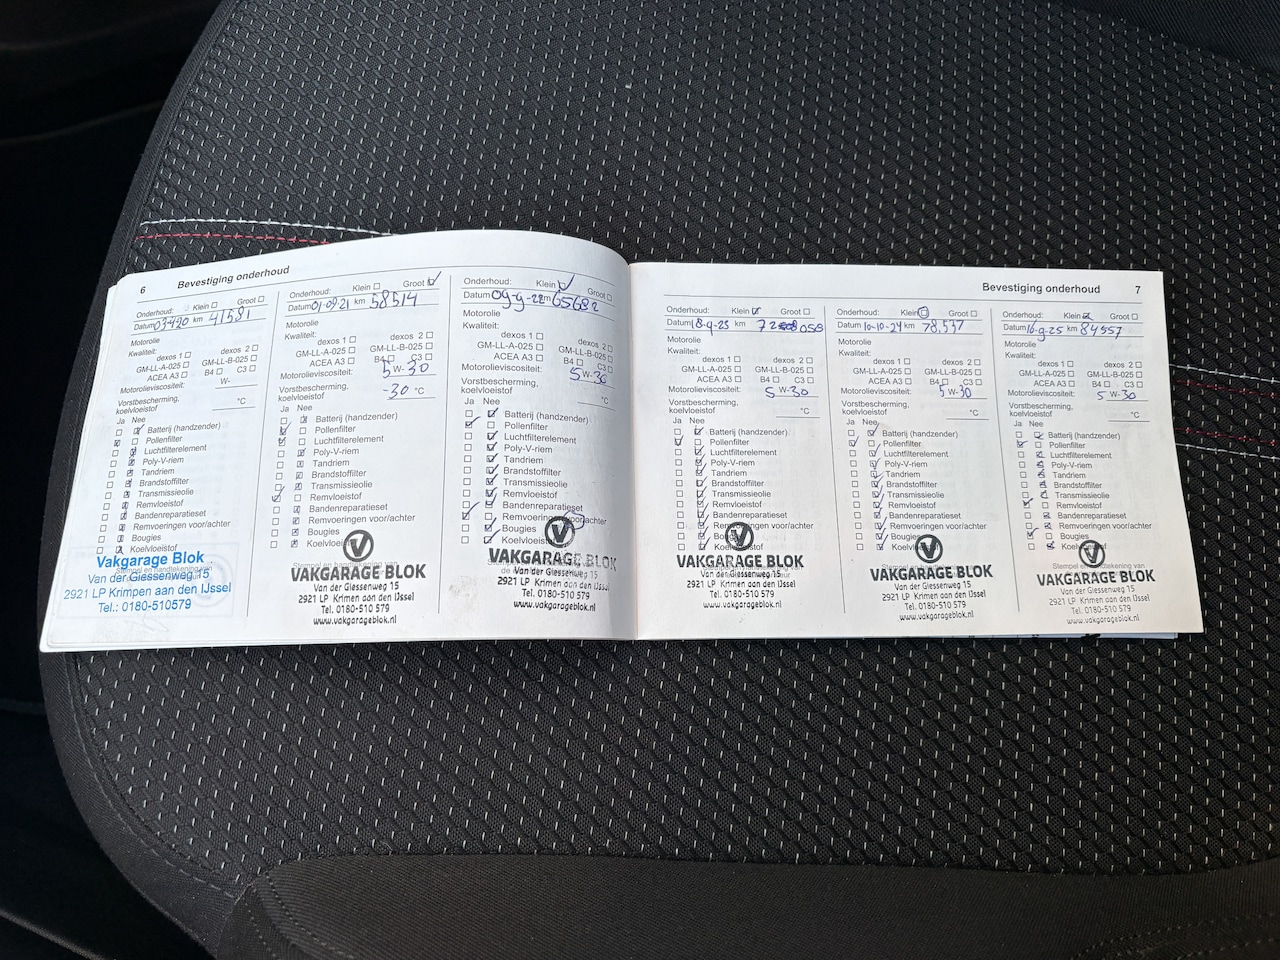 6 Bevestiging onderhoud
Onderhoud: Klein Groot
Datum 03-4-20 km 41581
Motorolie
Kwaliteit:
dexos 1 dexos 2
GM-LL-A-025 GM-LL-B-025
ACEA A3 B4 C3
Motorolieviscositeit: W-
Vorstbescherming,
koelvloeistof °C
Ja Nee
Batterij (handzender)
Pollenfilter
Luchtfilterelement
Poly-V-riem
Tandriem
Brandstoffilter
Transmissieolie
Remvloeistof
Bandenreparatieset
Remvoeringen voor/achter
Bougies
Koelvloeistof
Stempel en handtekening van
Vakgarage Blok
Van der Giessenweg 15
2921 LP Krimpen aan den IJssel
Tel.: 0180-510579
Onderhoud: Klein Groot
Datum 01-09-21 km 58514
Motorolie
Kwaliteit:
dexos 1 dexos 2
GM-LL-A-025 GM-LL-B-025
ACEA A3 B4 C3
Motorolieviscositeit: 5 W-30
Vorstbescherming,
koelvloeistof -30 °C
Ja Nee
Batterij (handzender)
Pollenfilter
Luchtfilterelement
Poly-V-riem
Tandriem
Brandstoffilter
Transmissieolie
Remvloeistof
Bandenreparatieset
Remvoeringen voor/achter
Bougies
Koelvloeistof
VAKGARAGE BLOK
Van der Giessenweg 15
2921 LP Krimen aan den IJssel
Tel. 0180-510 579
www.vakgarageblok.nl
Onderhoud: Klein Groot
Datum 09-9-22 km 65682
Motorolie
Kwaliteit:
dexos 1 dexos 2
GM-LL-A-025 GM-LL-B-025
ACEA A3 B4 C3
Motorolieviscositeit: 5 W-30
Vorstbescherming,
koelvloeistof °C
Ja Nee
Batterij (handzender)
Pollenfilter
Luchtfilterelement
Poly-V-riem
Tandriem
Brandstoffilter
Transmissieolie
Remvloeistof
Bandenreparatieset
Remvoeringen voor/achter
Bougies
Koelvloeistof
VAKGARAGE BLOK
Van der Giessenweg 15
2921 LP Krimen aan den IJssel
Tel. 0180-510 579
www.vakgarageblok.nl
Bevestiging onderhoud 7
Onderhoud: Klein Groot
Datum 18-9-23 km 72 058
Motorolie
Kwaliteit:
dexos 1 dexos 2
GM-LL-A-025 GM-LL-B-025
ACEA A3 B4 C3
Motorolieviscositeit: 5 W-30
Vorstbescherming,
koelvloeistof °C
Ja Nee
Batterij (handzender)
Pollenfilter
Luchtfilterelement
Poly-V-riem
Tandriem
Brandstoffilter
Transmissieolie
Remvloeistof
Bandenreparatieset
Remvoeringen voor/achter
Bougies
Koelvloeistof
VAKGARAGE BLOK
Van der Giessenweg 15
2921 LP Krimen aan den IJssel
Tel. 0180-510 579
www.vakgarageblok.nl
Onderhoud: Klein Groot
Datum 10-10-24 km 78.537
Motorolie
Kwaliteit:
dexos 1 dexos 2
GM-LL-A-025 GM-LL-B-025
ACEA A3 B4 C3
Motorolieviscositeit: 5 W-30
Vorstbescherming,
koelvloeistof °C
Ja Nee
Batterij (handzender)
Pollenfilter
Luchtfilterelement
Poly-V-riem
Tandriem
Brandstoffilter
Transmissieolie
Remvloeistof
Bandenreparatieset
Remvoeringen voor/achter
Bougies
Koelvloeistof
VAKGARAGE BLOK
Van der Giessenweg 15
2921 LP Krimen aan den IJssel
Tel. 0180-510 579
www.vakgarageblok.nl
Onderhoud: Klein Groot
Datum 16-9-25 km 84557
Motorolie
Kwaliteit:
dexos 1 dexos 2
GM-LL-A-025 GM-LL-B-025
ACEA A3 B4 C3
Motorolieviscositeit: 5 W-30
Vorstbescherming,
koelvloeistof °C
Ja Nee
Batterij (handzender)
Pollenfilter
Luchtfilterelement
Poly-V-riem
Tandriem
Brandstoffilter
Transmissieolie
Remvloeistof
Bandenreparatieset
Remvoeringen voor/achter
Bougies
Koelvloeistof
Stempel en handtekening van
VAKGARAGE BLOK
Van der Giessenweg 15
2921 LP Krimen aan den IJssel
Tel. 0180-510 579
www.vakgarageblok.nl